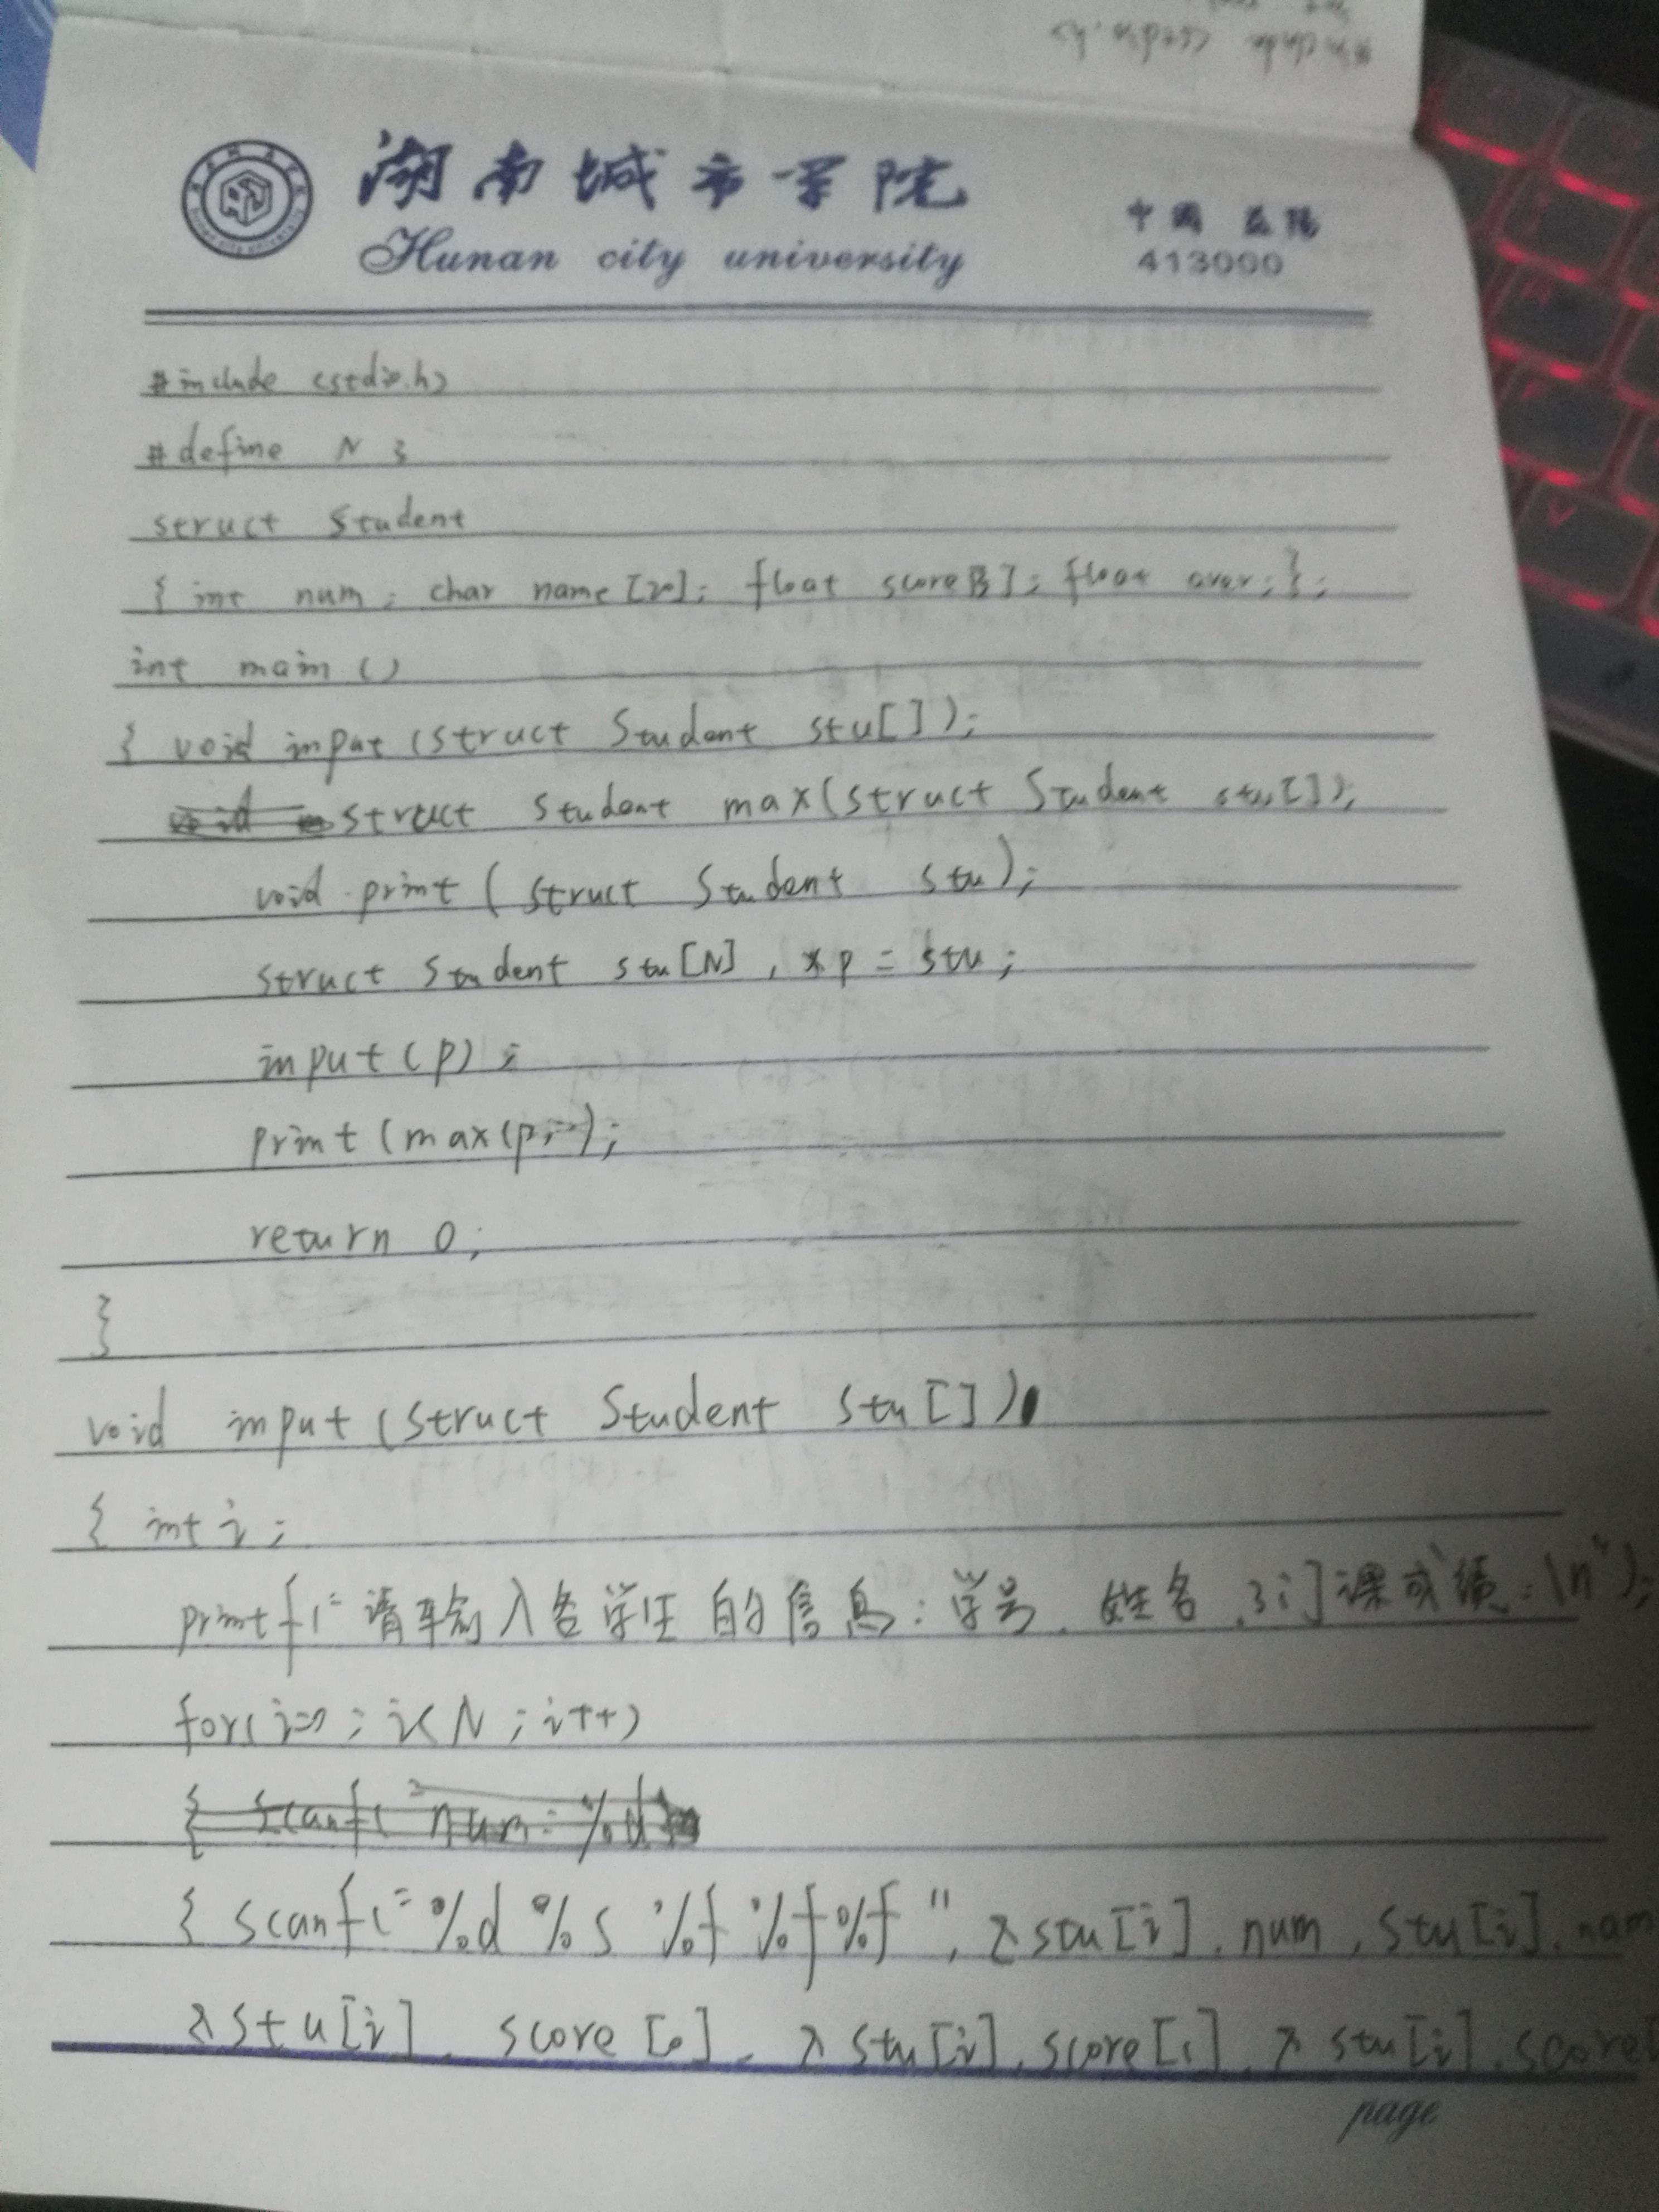 湖南城市学院
Hunan city university
中国 益阳
413000
#include <stdio.h>
#define N 3
struct Student
{ int num; char name[20]; float score[3]; float aver; };
int main ()
{ void input (struct Student stu[]);
struct Student max(struct Student stu[]);
void print ( struct Student stu);
struct Student stu[N], *p = stu;
input(p);
print (max(p));
return 0;
}
void input (struct Student stu[])
{ int i;
printf("请输入各学生的信息:学号、姓名、3门课成绩:\n");
for(i=0; i<N; i++)
{ scanf( num: %d
{ scanf("%d %s %f %f %f", &stu[i].num, stu[i].nam
&stu[i].score[0], &stu[i].score[1], &stu[i].score[
page